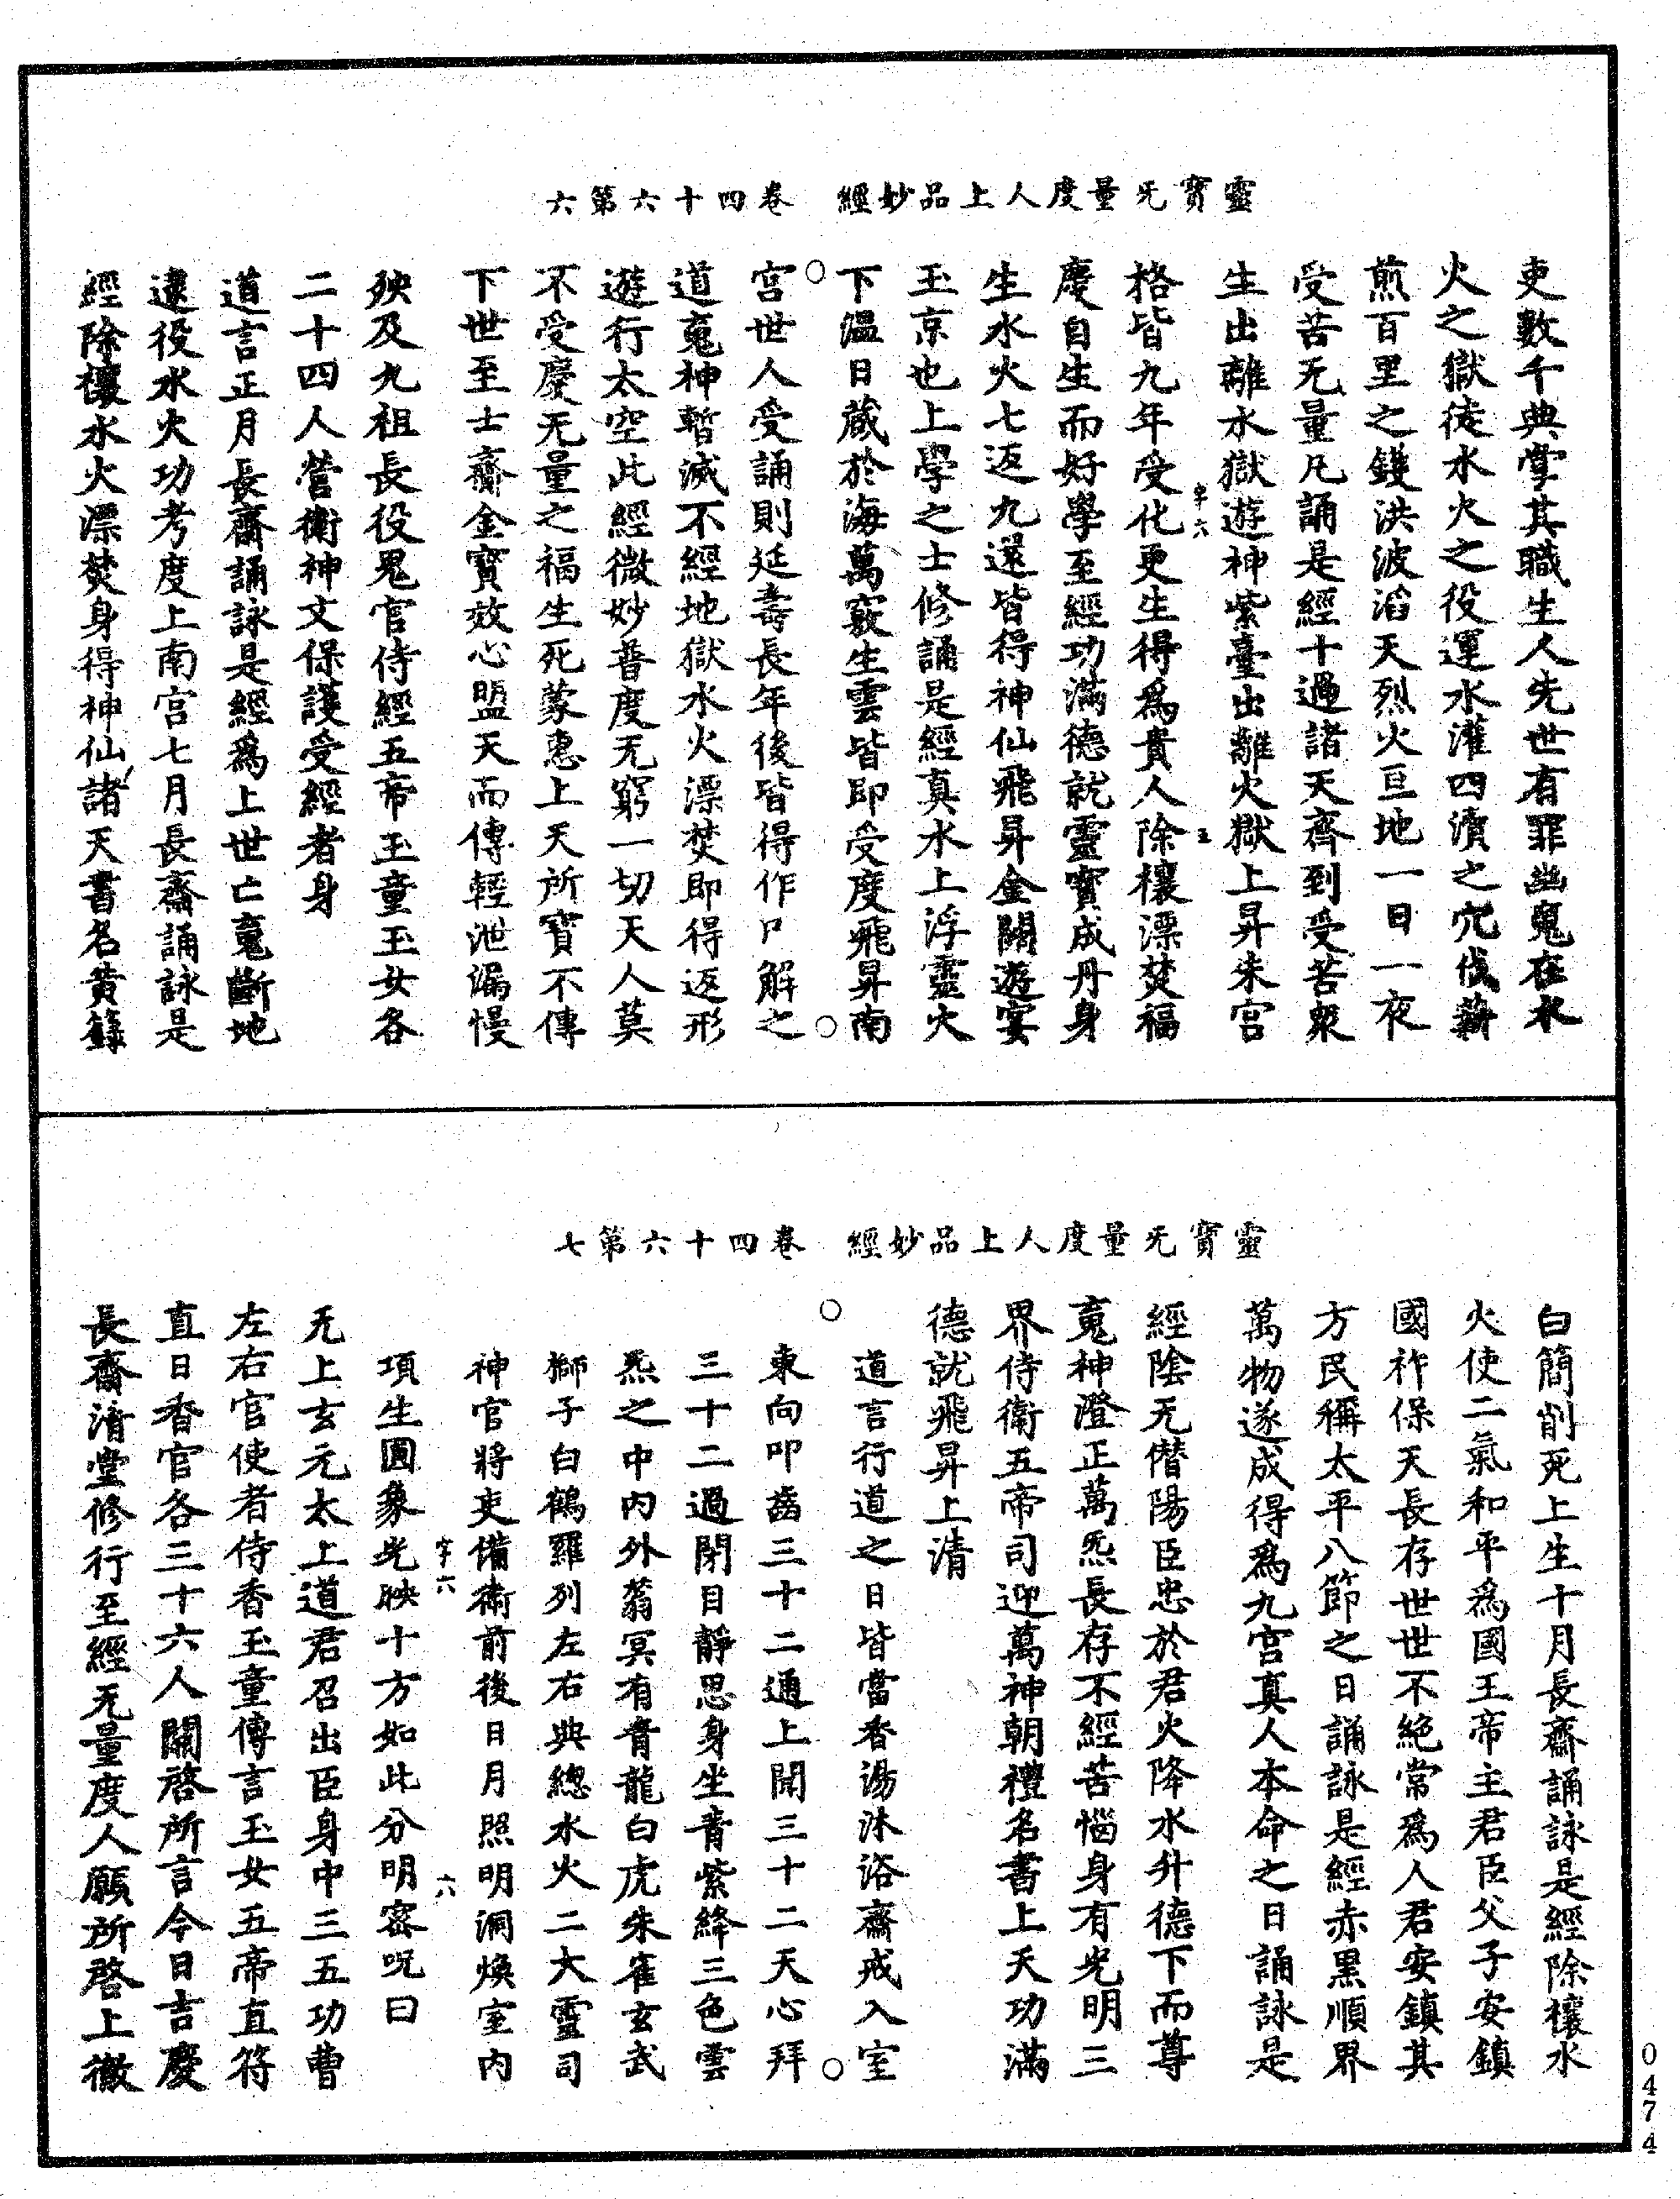 靈寶无量度人上品妙經　卷四十六第六
吏數千典掌其職生人先世有罪幽䰟在水
火之獄徒水火之役運水灌四瀆之穴伐薪
煎百里之鑊洪波滔天烈火亘地一日一夜
受苦无量凡誦是經十過諸天齊到受苦衆
生出離水獄遊神紫臺出離火獄上昇朱宮
字六　五
格皆九年受化更生得爲貴人除禳漂焚福
慶自生而好學至經功滿德就靈寶成丹身
生水火七返九還皆得神仙飛昇金闕遊宴
玉京也上學之士修誦是經真水上浮靈火
下溫日蔵於海萬竅生雲皆即受度飛昇南
宮世人受誦則延壽長年後皆得作尸解之
道䰟神暫滅不經地獄水火漂焚即得返形
遊行太空此經微妙普度无窮一切天人莫
不受慶无量之福生死蒙惠上天所寶不傳
下世至士齎金寶效心盟天而傳輕泄漏慢
殃及九祖長役鬼官侍經五帝玉童玉女各
二十四人營衛神文保護受經者身
道言正月長齋誦詠是經爲上世亡䰟斷地
逮役水火功考度上南宮七月長齋誦詠是
經除禳水火漂焚身得神仙諸天書名黃籙
靈寶无量度人上品妙經　卷四十六第七
白簡削死上生十月長齋誦詠是經除禳水
火使二氣和平爲國王帝主君臣父子安鎮
國祚保天長存世世不絕常爲人君安鎮其
方民稱太平八節之日誦詠是經赤黑順界
萬物遂成得爲九宮真人本命之日誦詠是
經陰无僣陽臣忠於君火降水升德下而尊
䰟神澄正萬炁長存不經苦惱身有光明三
界侍衛五帝司迎萬神朝禮名書上天功滿
德就飛昇上清
道言行道之日皆當香湯沐浴齋戒入室
東向叩齒三十二通上聞三十二天心拜
三十二過閉目靜思身坐青紫絳三色雲
炁之中內外蓊冥有青龍白虎朱雀玄武
獅子白鶴羅列左右典總水火二大靈司
神官將吏備衛前後日月照明洞煥室內
字六　六
項生圓象光映十方如此分明密呪曰
无上玄元太上道君召出臣身中三五功曹
左右官使者侍香玉童傳言玉女五帝直符
直日香官各三十六人關啓所言今日吉慶
長齋清堂修行至經无量度人願所啓上徹
0474